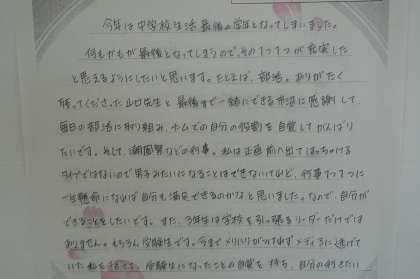 今年は中学校生活最後の学年となってしまいました。
何もかもが最後となってしまうので、その1つ1つが充実した
と思えるようにしたいと思います。たとえば、部活。ありがたく
残ってくださった山口先生と最後まで一緒にできる部活に感謝して、
毎日の部活に取り組み、チームでの自分の役割を自覚してがんばり
たいです。そして、潮風祭などの行事。私は正直前へ出てはっちゃける
タイプではないので男子みたいになることはできないけど、行事1つ1つに
一生懸命になれば自分も満足できるのかなと思いました。なので、自分が
できることをしたいです。また、3年生は学校を引っ張るリーダーだけでは
ありません。もちろん受験生です。今までメリハリがつけれずメディアに逃げて
いた私を捨て、受験生になったことの自覚を持ち、自分の行きたい